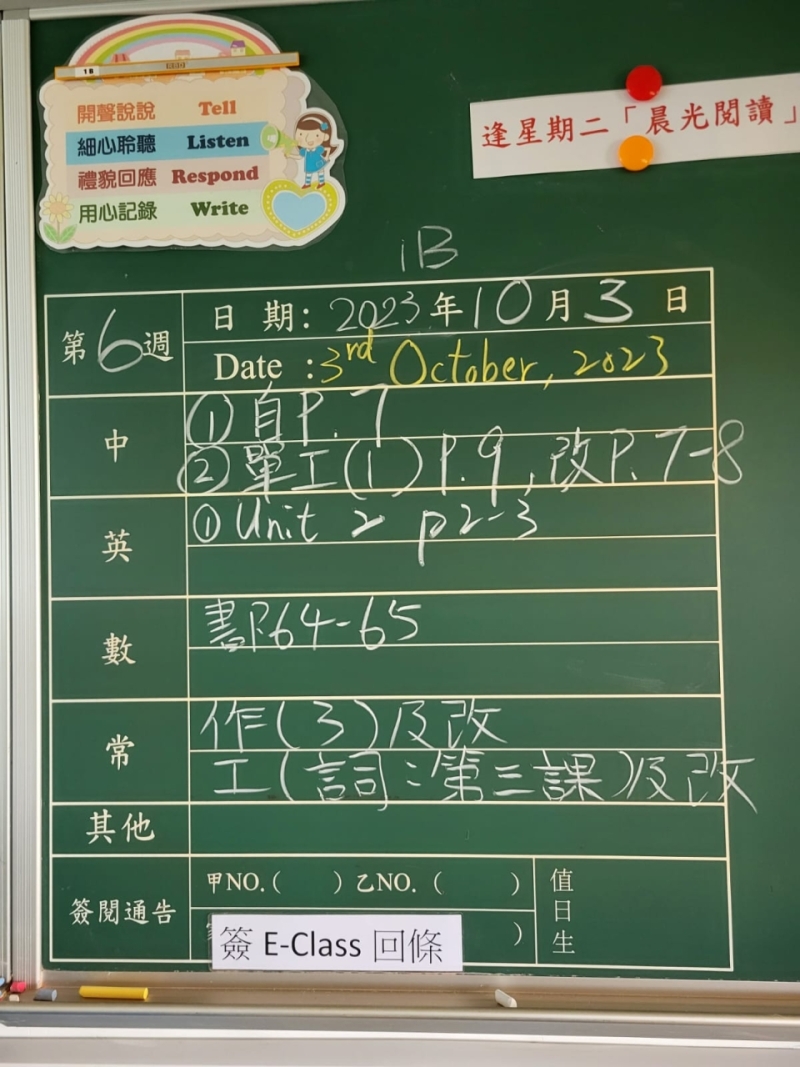 開聲說說 Tell
細心聆聽 Listen
禮貌回應 Respond
用心記錄 Write
逢星期二「晨光閱讀」
1B
第6週
日期：2023年10月3日
Date : 3rd October, 2023
中
① 自P.7
② 單工(1)P.9，改P.7-8
英
① Unit 2 p2-3
數
書P.64-65
常
作(3)及改
工(詞：第三課)及改
其他
簽閱通告
甲NO.( ) 乙NO.( )
)
簽 E-Class 回條
值日生